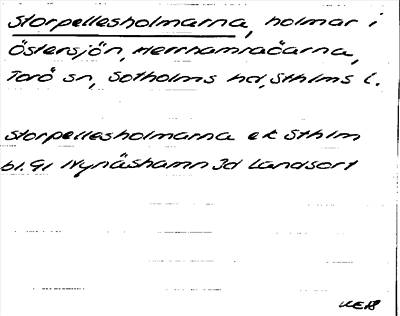 Storpellesholmarna, holmar i
Östersjön, Herrhamraöarna,
Torö sn, Sotholms hd, Sthlms l.
Storpellesholmarna ek Sthlm
bl. 91 Nynäshamn Jd Landsort